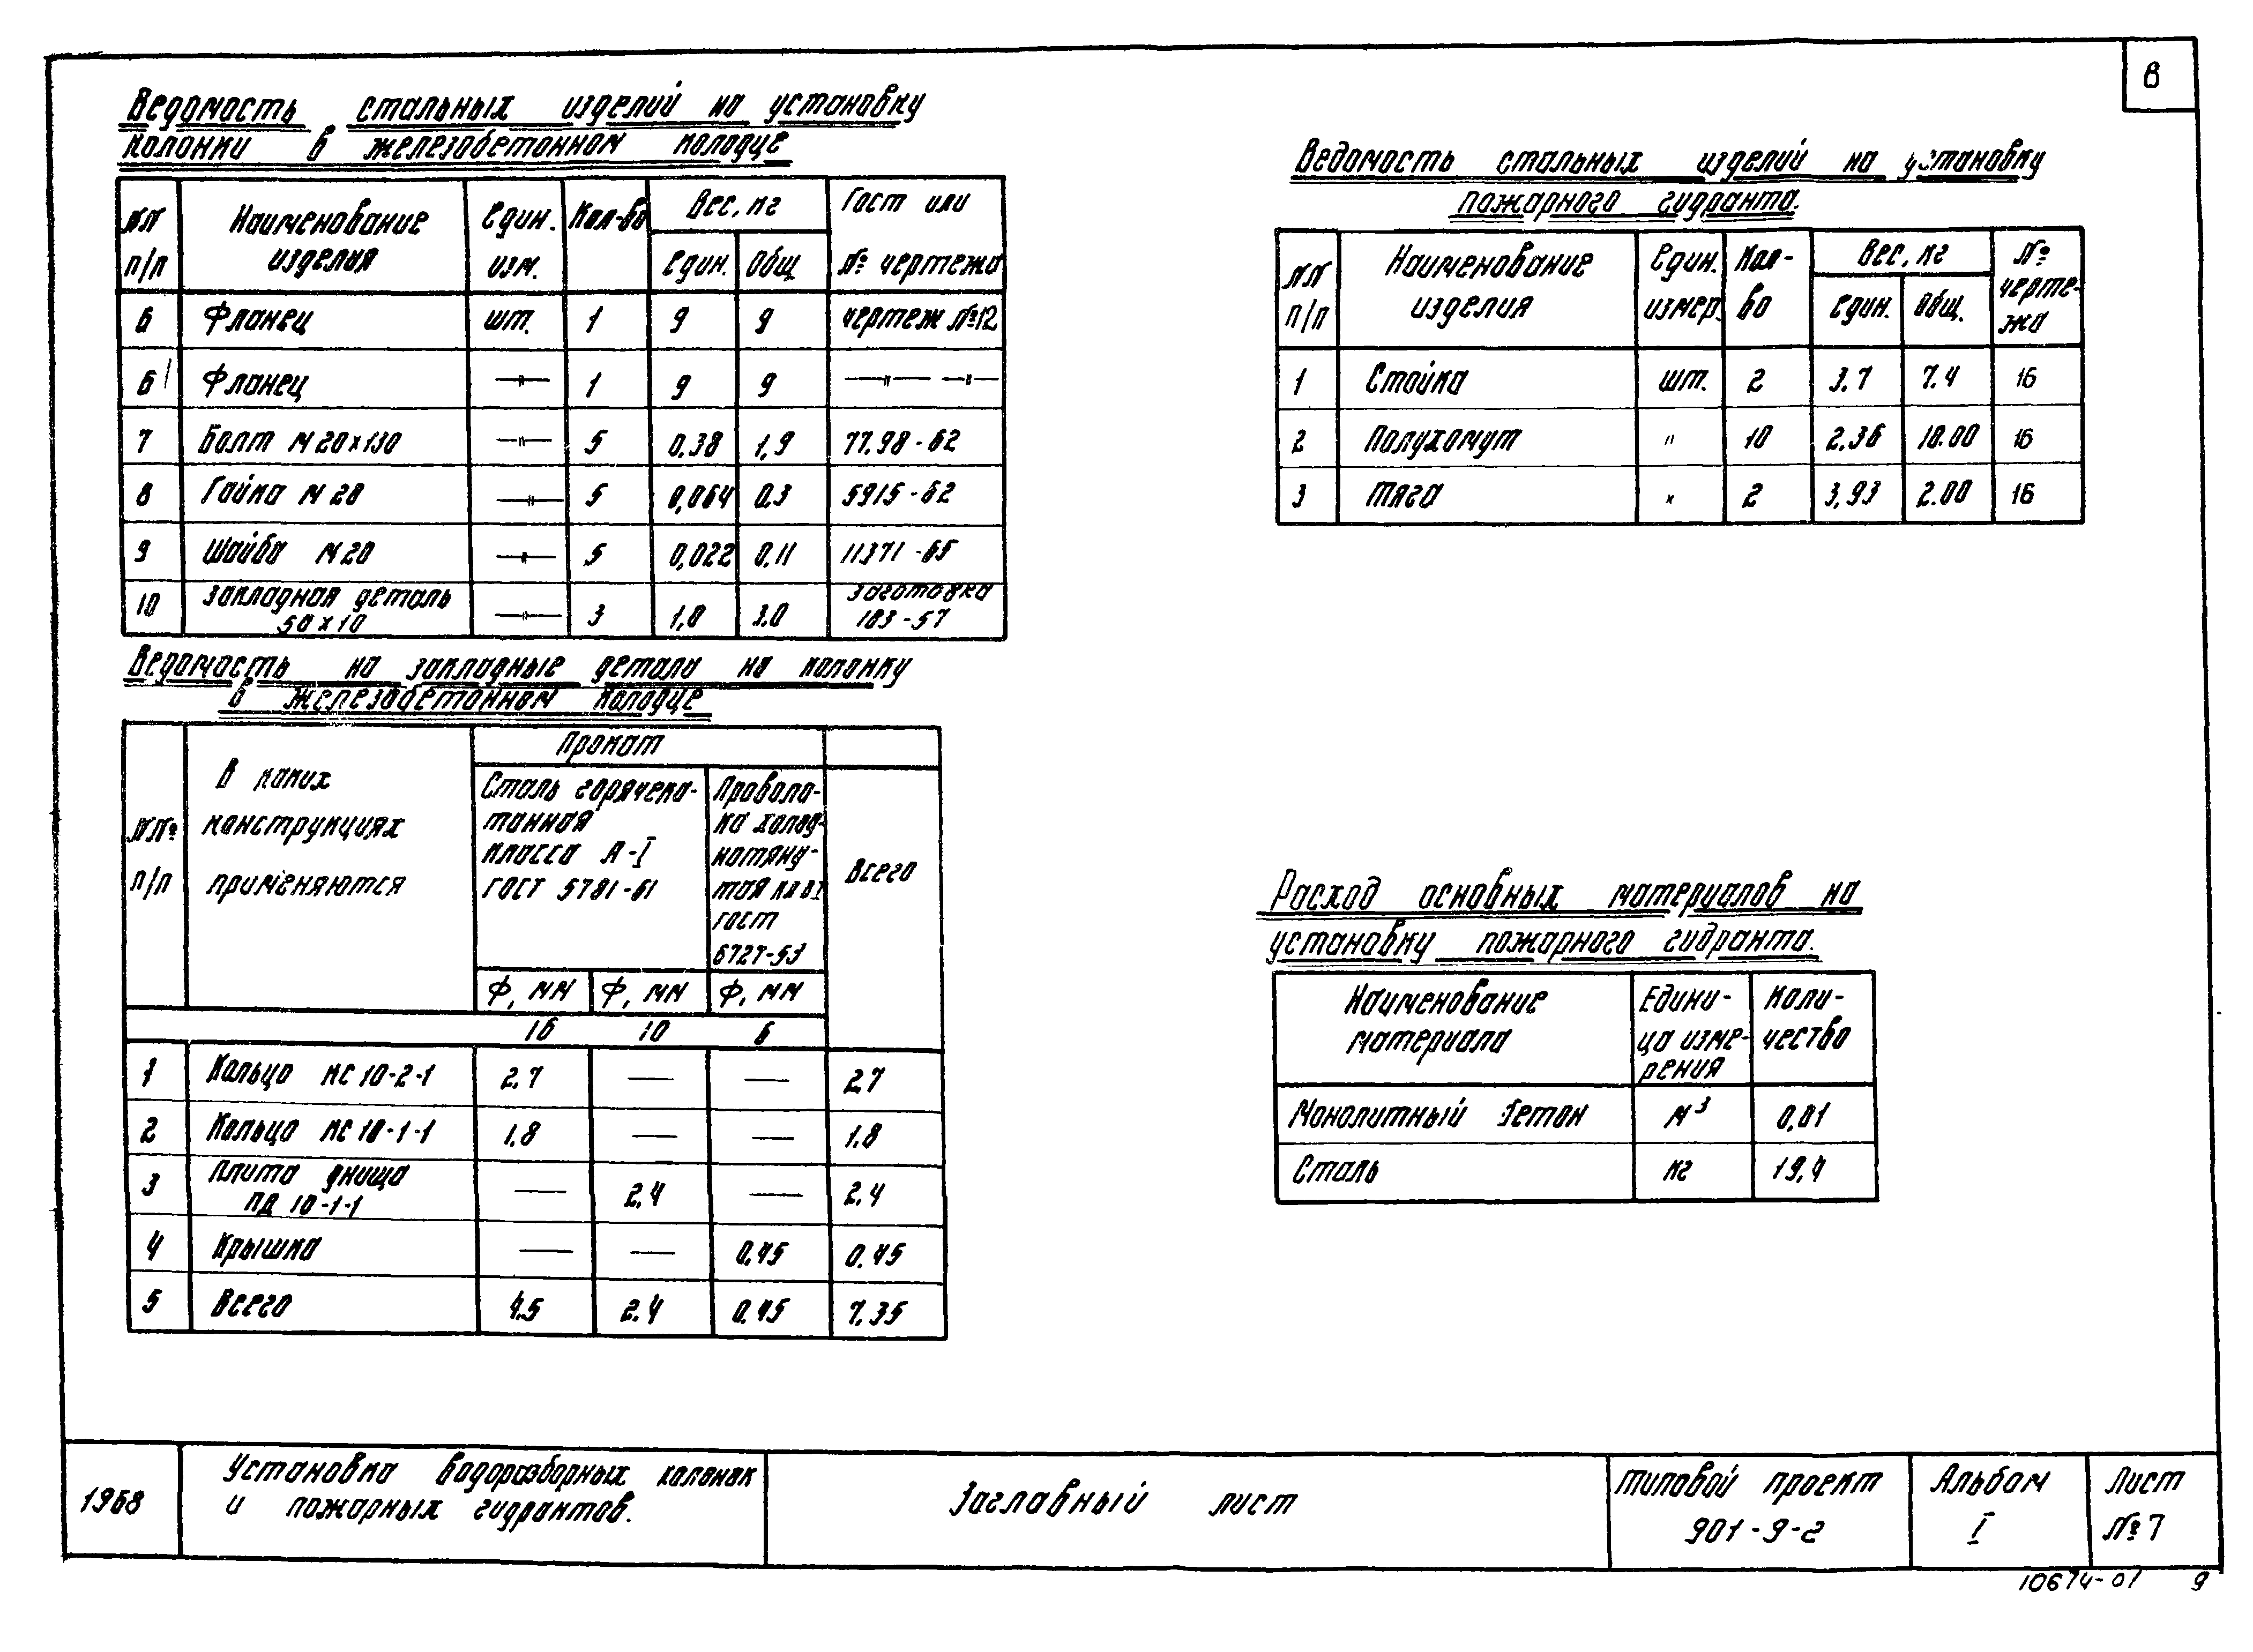 8
Ведомость стальных изделий на установку
колонки в железобетонном колодце
NN п/п | Наименование изделия | Един. изм. | Кол-во | Вес, кг един. | Вес, кг Общ. | Гост или № чертежа
6 | Фланец | шт. | 1 | 9 | 9 | чертеж №12
6' | Фланец | —"— | 1 | 9 | 9 | —"— —"—
7 | Болт М20х130 | —"— | 5 | 0.38 | 1,9 | 77.98-62
8 | Гайка М20 | —"— | 5 | 0,064 | 0.3 | 5915-62
9 | Шайба М20 | —"— | 5 | 0,022 | 0.11 | 11371-65
10 | Закладная деталь 50х10 | —"— | 3 | 1,0 | 3.0 | заготовка 103-57
Ведомость на закладные детали на колонку
в железобетонном колодце
NN° п/п | В каких конструкциях применяются | Прокат | Всего
Сталь горячека-
танная
класса А-I
ГОСТ 5781-61
Проволо-
ка холод-
нотяну-
тая кл ВI
гост
6727-53
Ф, мм | Ф, мм | Ф, мм
16 | 10 | 6
1 | Кольцо КС 10-2-1 | 2.7 | — | — | 2.7
2 | Кольцо КС 10-1-1 | 1.8 | — | — | 1.8
3 | Плита днища ПД 10-1-1 | — | 2.4 | — | 2.4
4 | Крышка | — | — | 0.45 | 0.45
5 | Всего | 4.5 | 2.4 | 0.45 | 7.35
Ведомость стальных изделий на установку
пожарного гидранта.
NN п/п | Наименование изделия | Един. измер. | Кол-во | Вес, кг един. | Вес, кг Общ. | № черте-жа
1 | Стойка | шт. | 2 | 3.7 | 7.4 | 16
2 | Полухомут | " | 10 | 2.36 | 10.00 | 16
3 | Тяга | " | 2 | 3,93 | 2.00 | 16
Расход основных материалов на
установку пожарного гидранта.
Наименование материала | Едини-ца изме-рения | Коли-чество
Монолитный бетон | м³ | 0,01
Сталь | кг | 19,4
1968
Установка водоразборных колонок
и пожарных гидрантов.
Заглавный лист
Типовой проект
901-9-2
Альбом
I
Лист
№7
10674-01 9